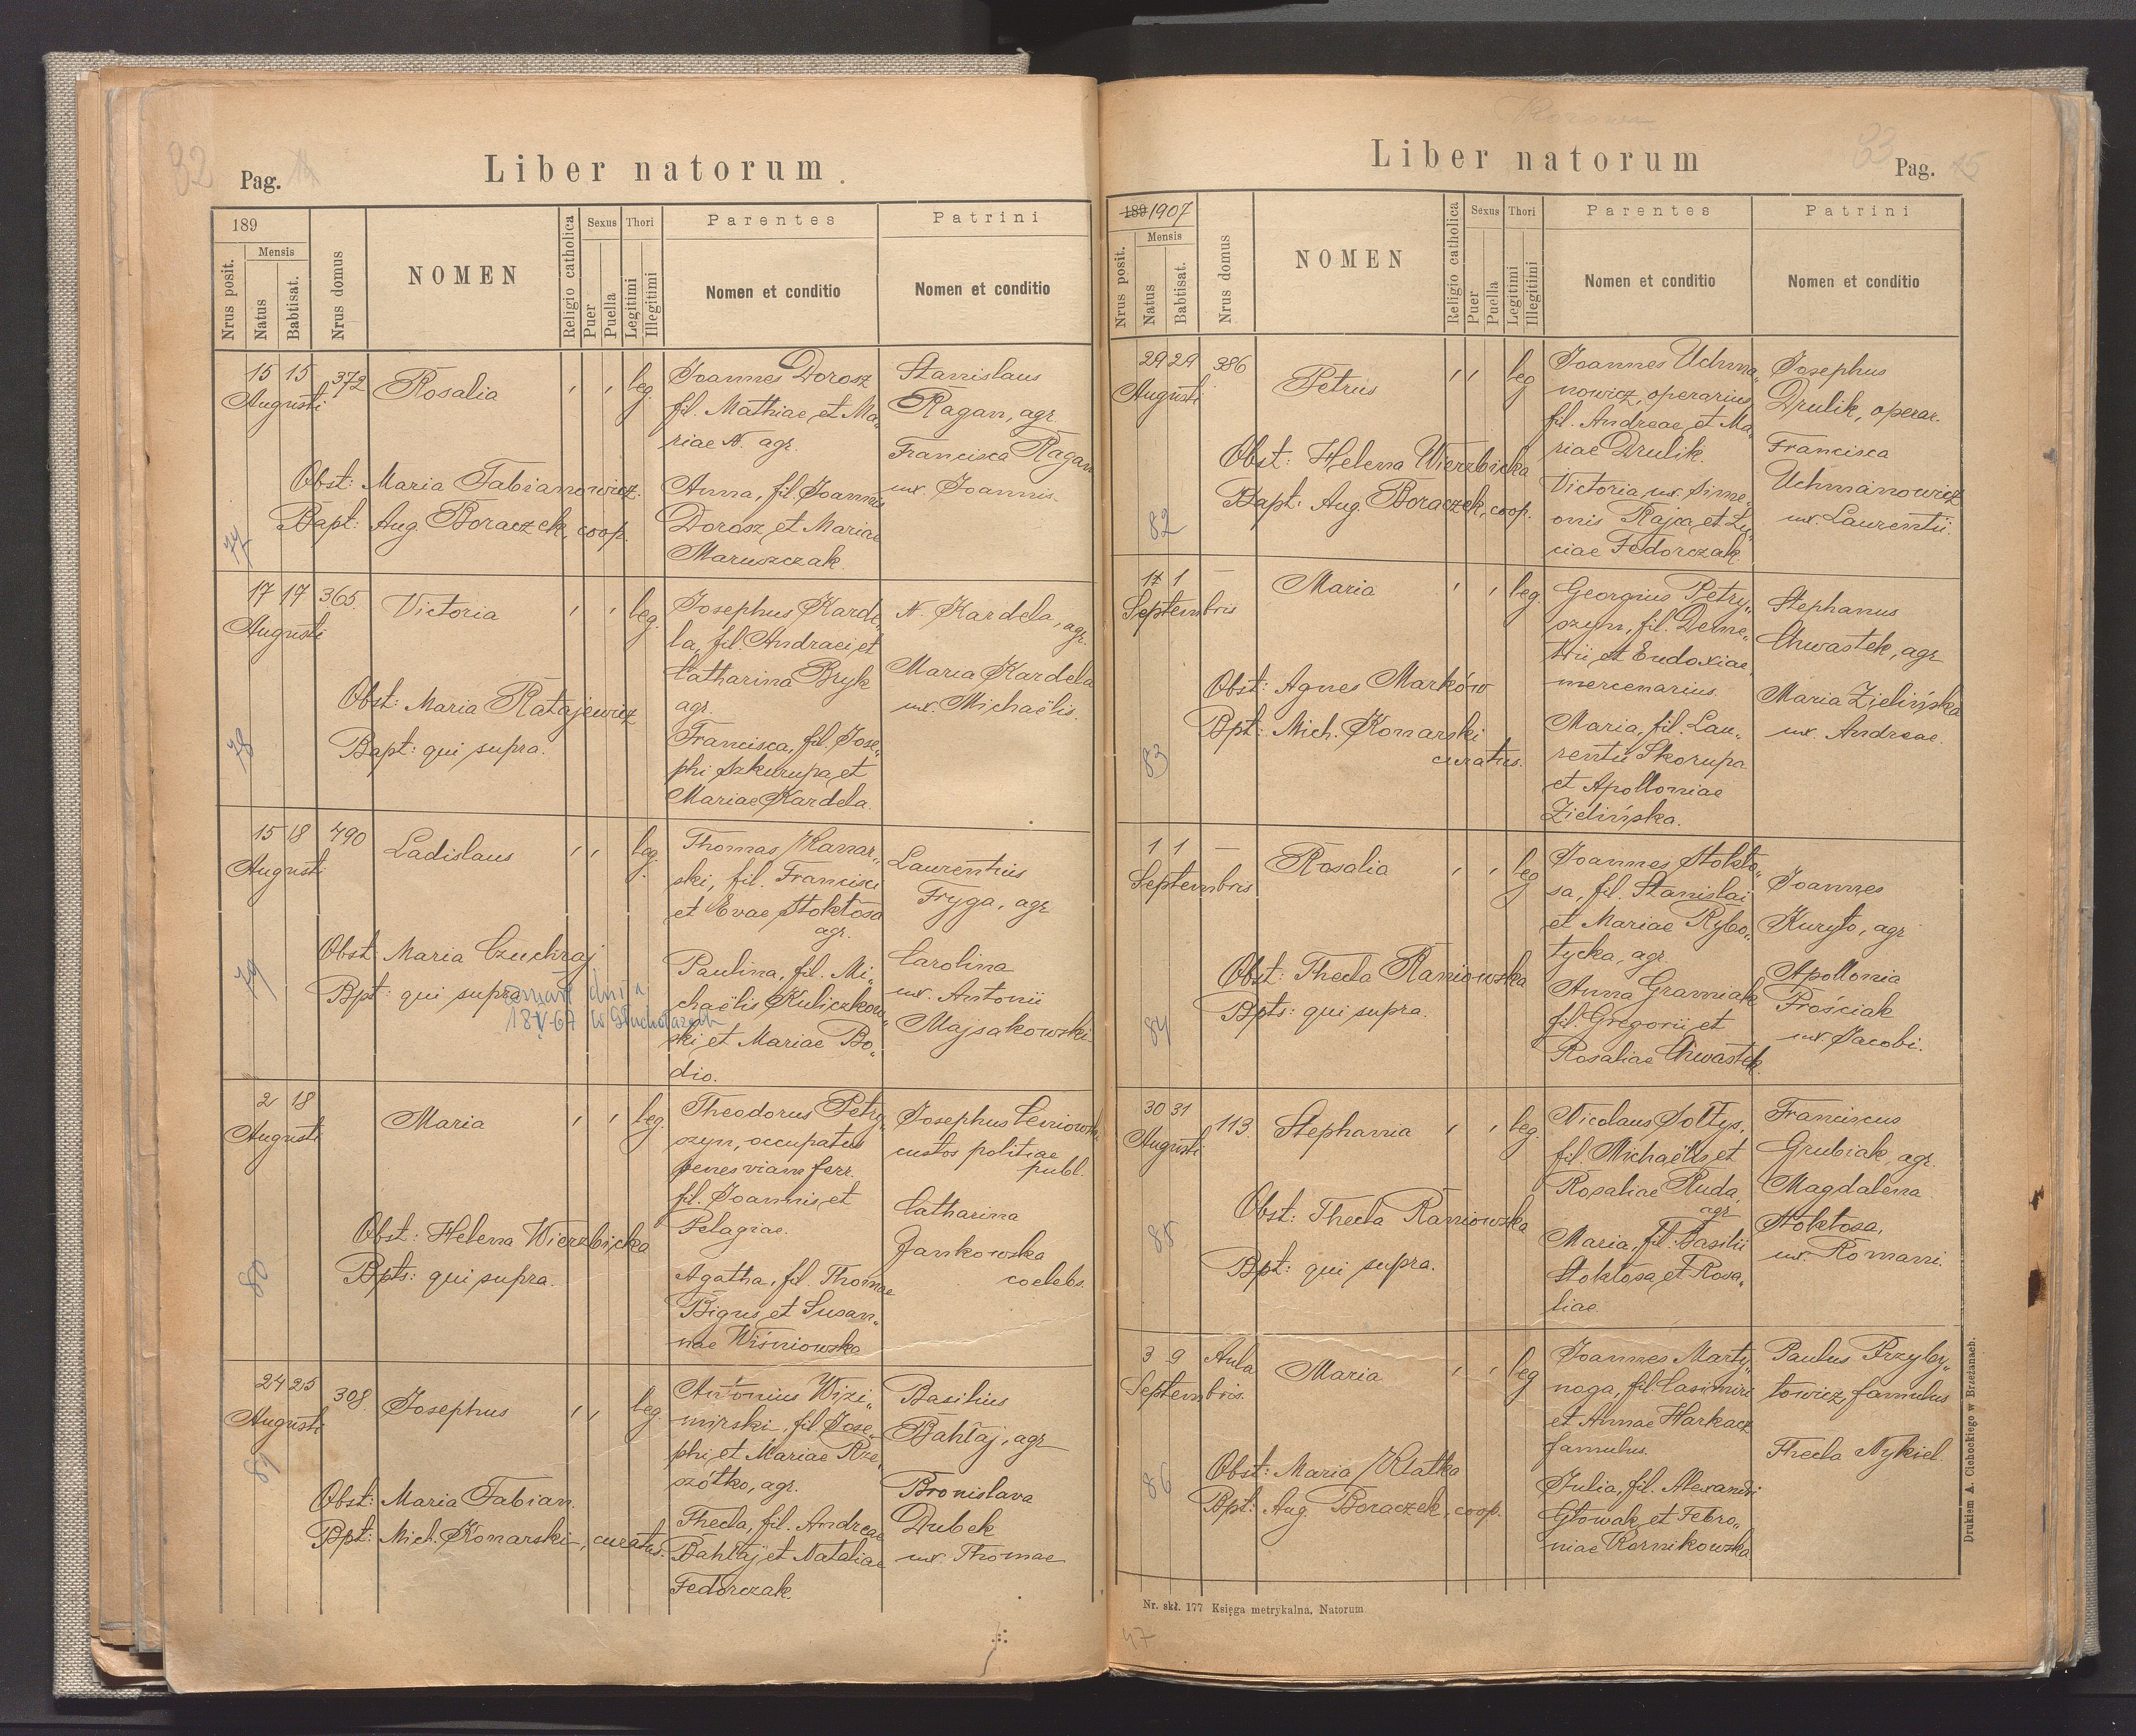 32
Pag.
Liber natorum
189
Nrus posit.
Mensis
Natus
Babtisat.
Nrus domus
NOMEN
Religio catholica
Sexus
Puer
Puella
Thori
Legitimi
Illegitimi
Parentes
Nomen et conditio
Patrini
Nomen et conditio
15 15 372
Augusti
Rosalia
leg.
Joannes Dorosz
fil. Mathiae et Ma„
riae N. agr.
Anna, fil. Joannis
Dorosz et Mariae
Maruszczak.
Stanislaus
Ragan, agr.
Francisca Ragan
ux. Joannis.
Obst: Maria Fabianowicz.
Bapt: Aug. Boraczek, coop.
77
17 17 365.
Augusti
Victoria
leg.
Josephus Karde„
la, fil. Andraei et
Catharina Bryk
agr.
Francisca, fil. Jose„
phi Szkurupa et
Mariae Kardela.
N. Kardela, agr.
Maria Kardela
ux. Michaëlis.
Obst: Maria Ratajewicz
Bapt: qui supra.
78
15 18 490
Augusti
Ladislaus
leg.
Thomas Kanar„
ski, fil. Francisci
et Evae Stokłosa
agr.
Paulina, fil. Mi„
chaëlis Kuliczkow„
ski et Mariae Bo„
dio.
Laurentius
Fryga, agr
Carolina
ux. Antonii
Majsakowski
Obst: Maria Czuchraj
Bpt: qui supra.
zmarł dnia
18-V-67 w Głuchołazach
79
2 18
Augusti
Maria
leg.
Theodorus Petry„
szyn, occupatus
penes viam ferr.
fil. Joannis et
Pelagiae.
Agatha, fil. Thomae
Bigus et Susan„
nae Wiśniowska
Josephus
custos politiae
publ.
Catharina
Jankowska
coelebs.
Obst: Helena Wierzbicka
Bpts: qui supra.
80
24 25 308.
Augusti
Josephus
leg
Antonius Wizi„
mirski, fil. Jose„
phi et Mariae Rze„
szótko, agr.
Thecla, fil. Andreae
Bahłaj et Nataliae
Fedorczak.
Basilius
Bahłaj, agr
Bronislava
Dubek
ux. Thomae
Obst: Maria Fabian.
Bpt: Mich. Konarski, curatus.
81
33
Liber natorum
Pag. 15
189 1907
Nrus posit.
Mensis
Natus
Babtisat.
Nrus domus
NOMEN
Religio catholica
Sexus
Puer
Puella
Thori
Legitimi
Illegitimi
Parentes
Nomen et conditio
Patrini
Nomen et conditio
29 29 386
Augusti
Petrus
leg
Joannes Uchma„
nowicz, operarius,
fil. Andreae et Ma„
riae Drulik.
Victoria ux. Sime„
onis Rajca et Lu„
ciae Fedorczak
Josephus
Drulik, operar.
Francisca
Uchmanowicz
ux. Laurentii.
Obst: Helena Wierzbicka
Bapt: Aug. Boraczek, coop.
82
1 –
Septembris
Maria
leg.
Georgius Petry„
szyn, fil. Deme„
trii et Eudoxiae,
mercenarius.
Maria, fil. Lau„
rentii Skorupa
et Apolloniae
Zielińska.
Stephanus
Chwastek, agr
Maria Zielińska
ux. Andreae.
Obst: Agnes Marków
Bpt: Mich. Konarski
curatus.
83
1 1 –
Septembris
Rosalia
leg
Joannes Stokło„
sa, fil. Stanislai
et Mariae Rybo„
tycka, agr.
Anna Gramiak
fil. Gregorii et
Rosaliae Chwastek.
Joannes
Kuryło, agr
Apollonia
Prościak
ux. Jacobi.
Obst: Thecla Raniowska
Bpts: qui supra.
84
30 31 113.
Augusti
Stephania
leg.
Nicolaus Sołtys,
fil. Michaëlis et
Rosaliae Ruda,
agr
Maria, fil. Basilii
Stokłosa et Rosa„
liae.
Franciscus
Grubiak, agr.
Magdalena
Stokłosa,
ux. Romani.
Obst: Thecla Raniowska
Bpt: qui supra.
85
3 9 Aula
Septembris.
Maria
leg
Joannes Marty„
noga, fil. Casimiri
et Annae Harkacz
famulus.
Julia, fil. Alexandri
Głowak et Febro„
niae Kornikowska
Paulus Przyby„
towicz, famulus
Thecla Nykiel.
Obst: Maria Klatka
Bpt: Aug. Boraczek, coop.
86
Nr. skł. 177 Księga metrykalna, Natorum
Drukiem A. Cichockiego w Brzeżanach.
47